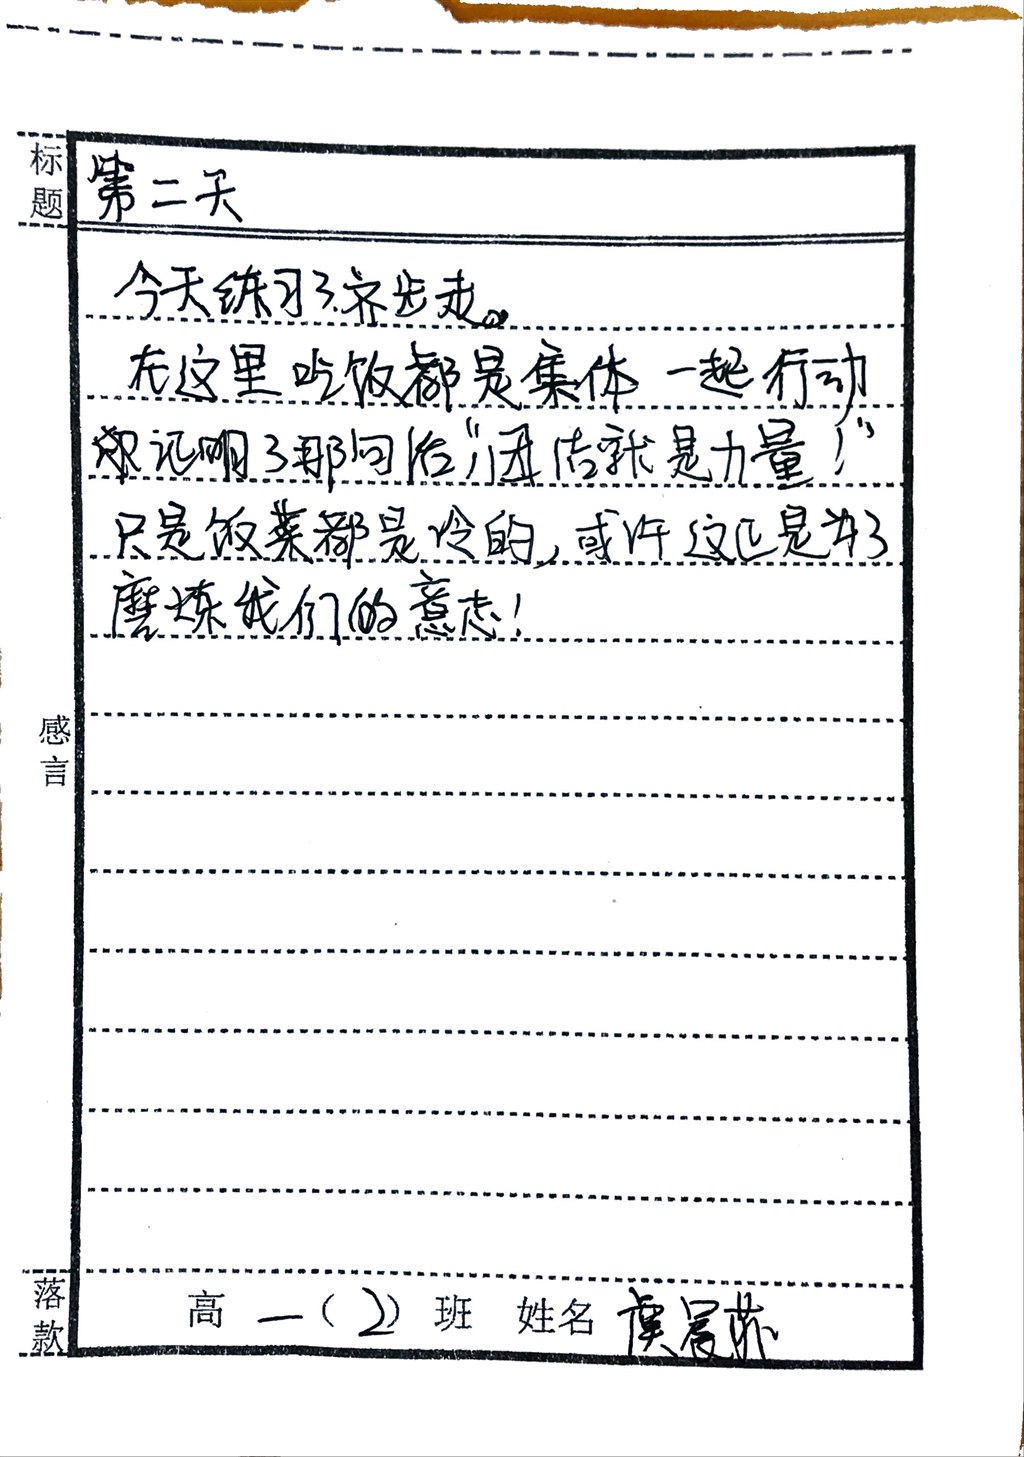 标题
第二天
今天练习了齐步走。
在这里吃饭都是集体一起行动
很证明了那句话“团结就是力量！”
只是饭菜都是冷的，或许这正是为了
磨炼我们的意志！
感言
落款
高一（2）班 姓名 虞晨苏